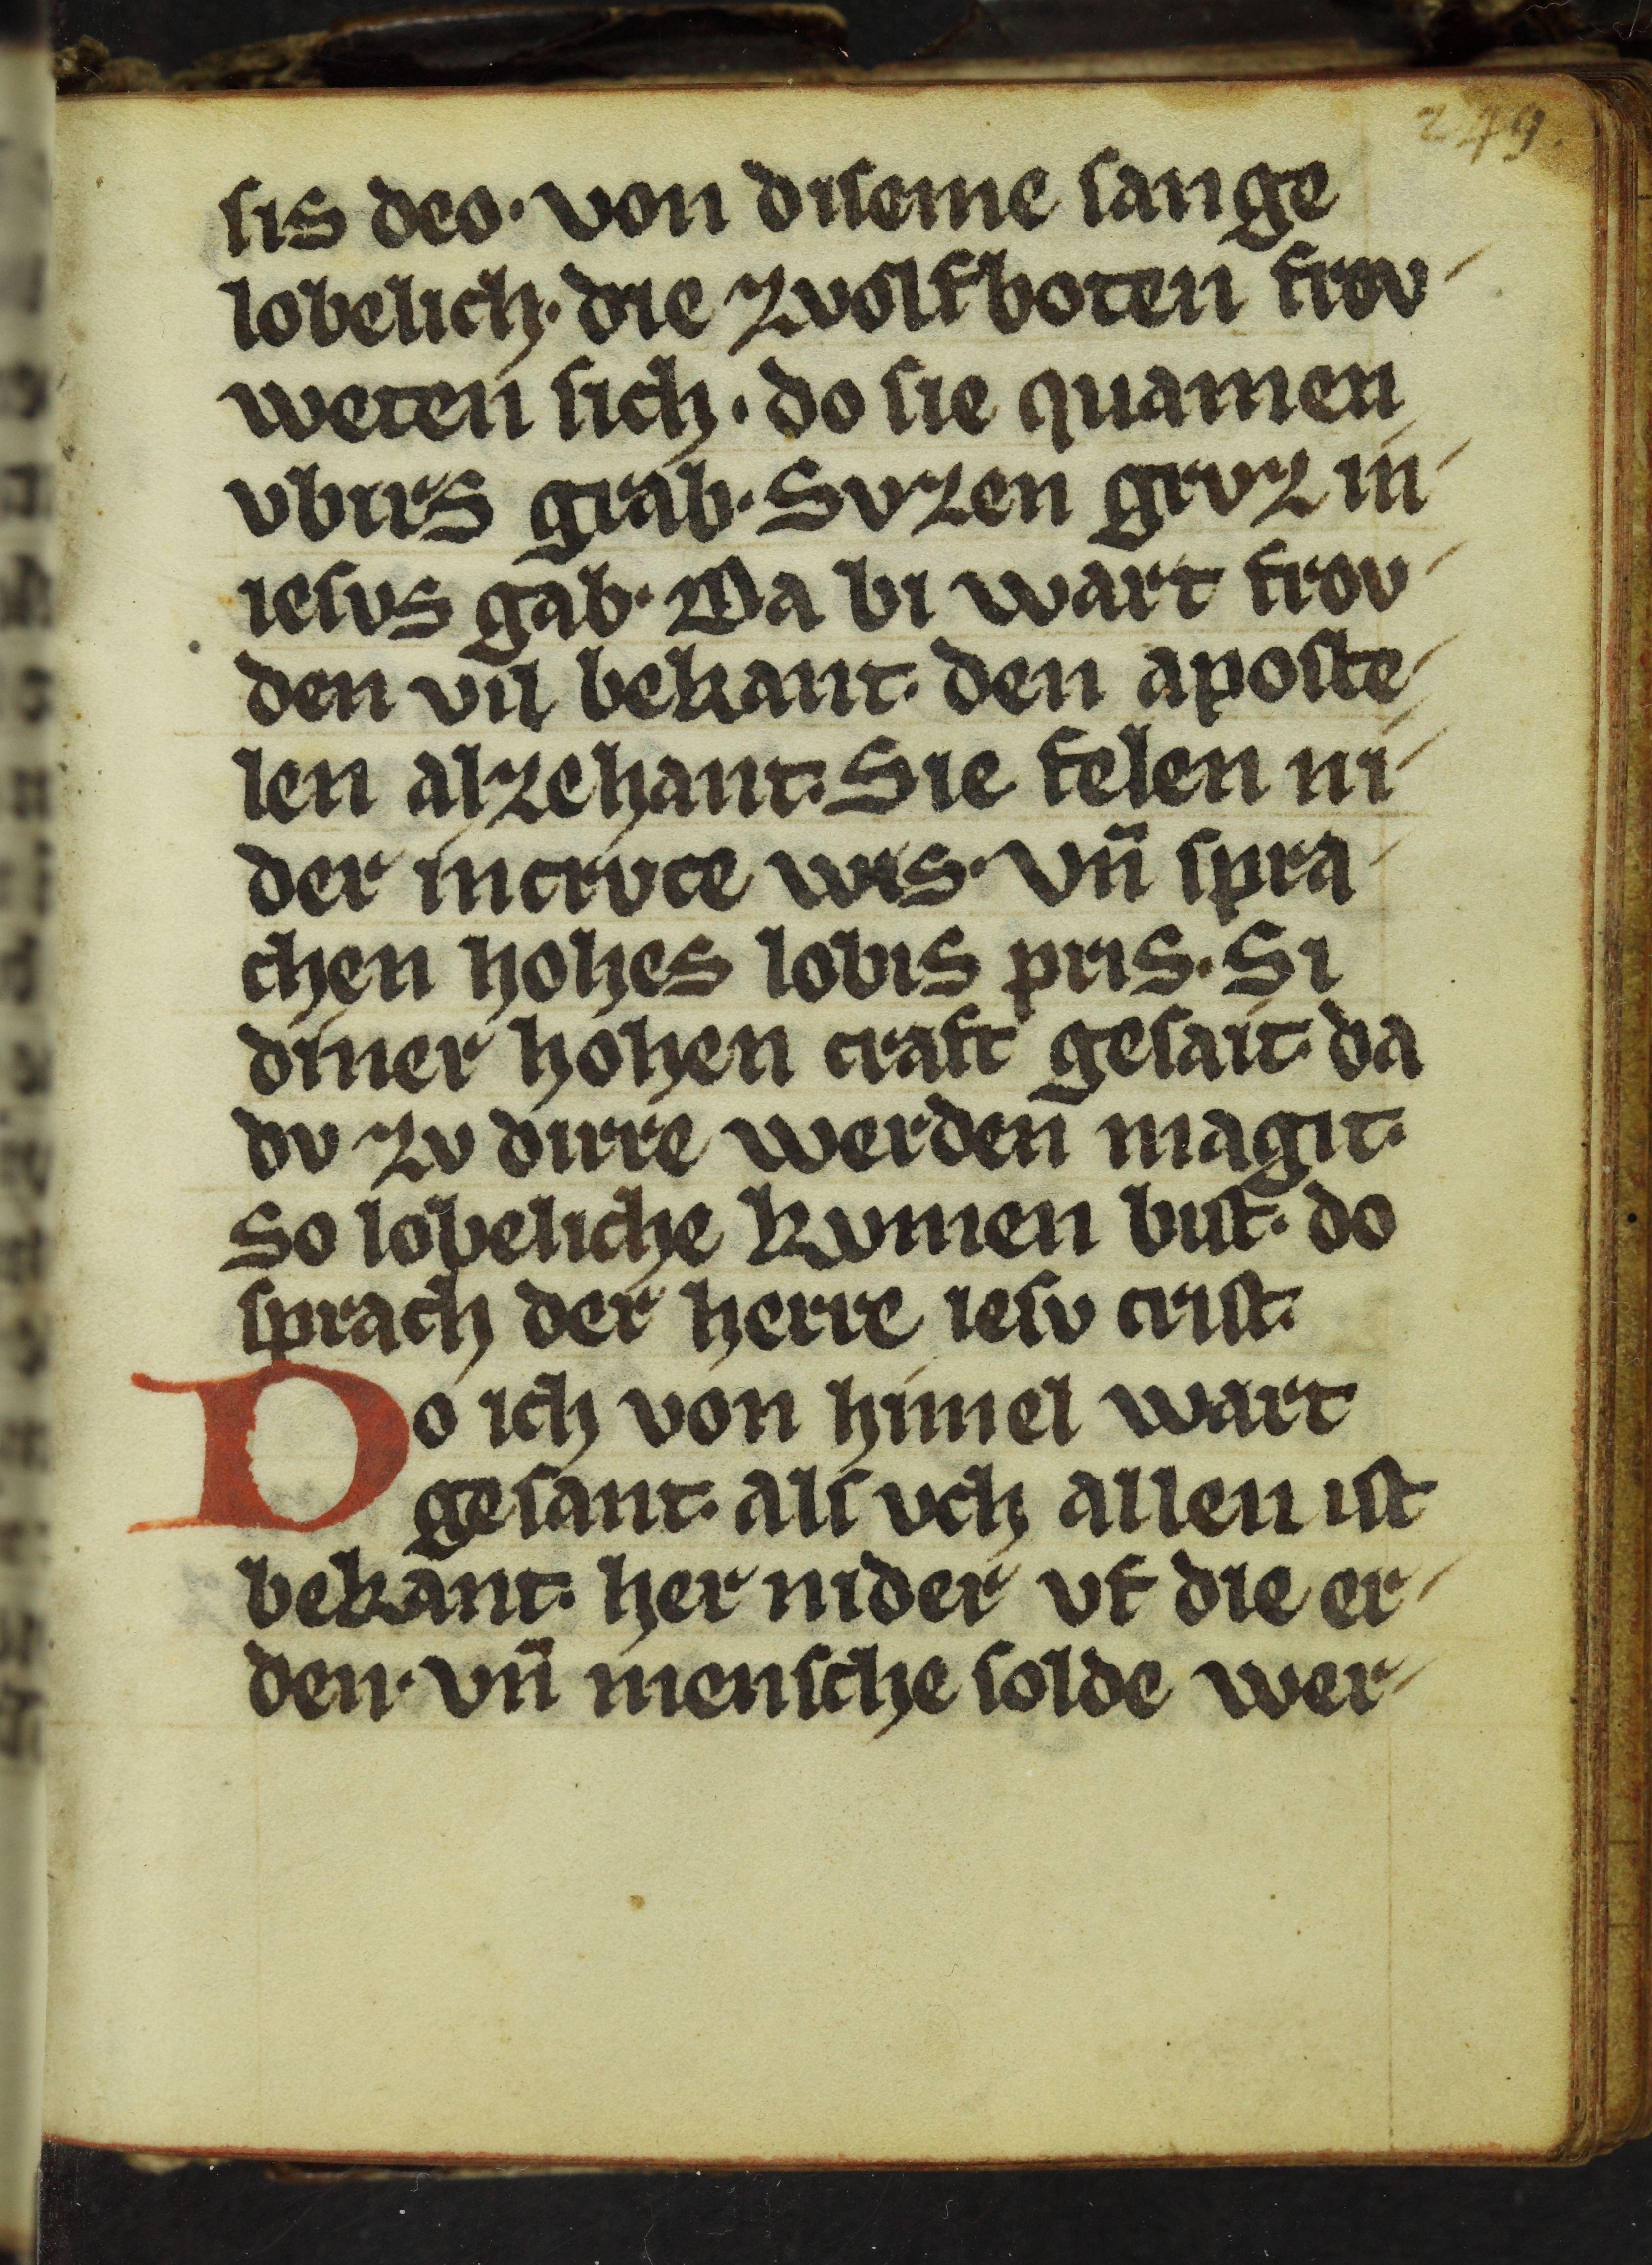 249.
sis deo· von diseme sange
lobelich· die zvolfboten frov-
weten sich· do sie quamen
vbirs grab· Svzen grvz in-
iesvs gab· Da bi wart frov-
den vil bekant· den aposte-
len alzehant· Sie felen ni-
der incrvce wis· Vn̄ spra-
chen hohes lobis pris· Si
diner hohen craft gesait· da
dv zv dirre werden magit·
So lobeliche kvmen bist· do
sprach der herre iesv crist·
Do ich von himel wart
gesant· als vch allen ist
bekant· her nider vf die er-
den· vn̄ mensche solde wer-